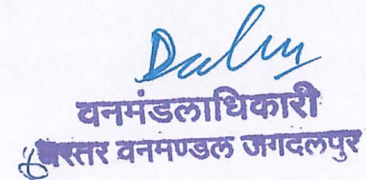 वनमंडलाधिकारी
बस्तर वनमण्डल जगदलपुर